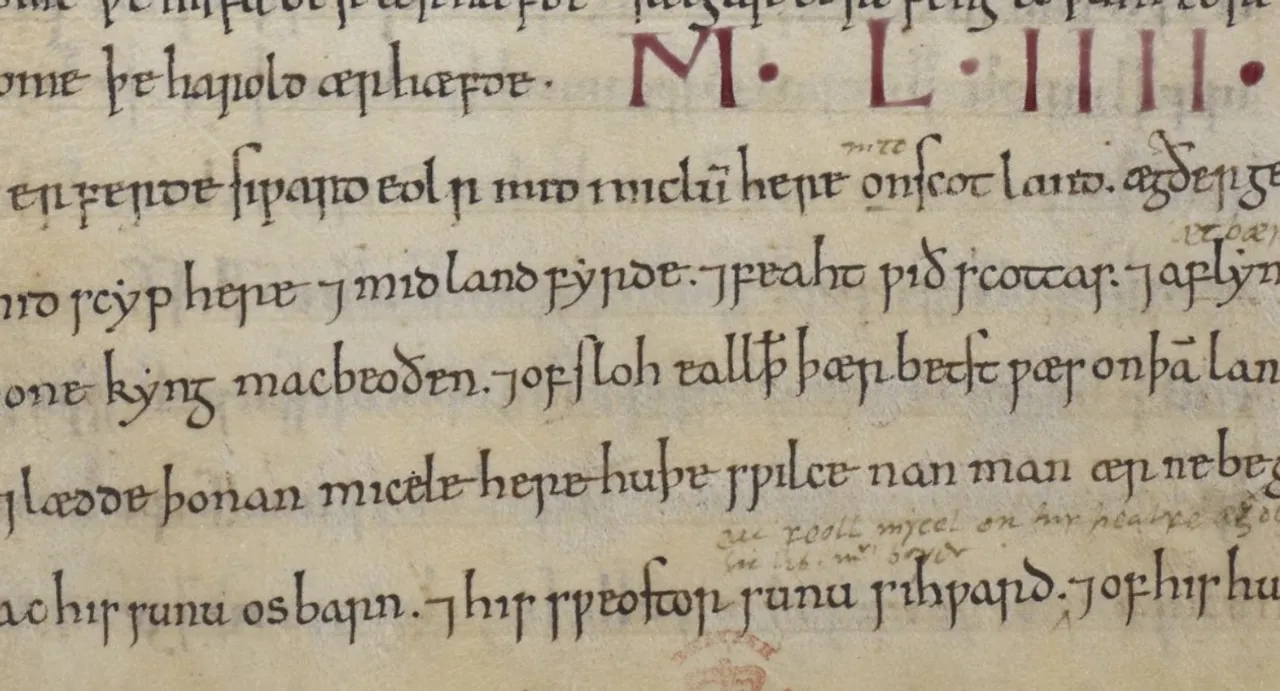 ome þe harold ær hæfde · M · L · IIII ·
er ferde siƿard eol r mid miclū here on scot land. ægðer ge
mid scyp here ⁊ mid land fyrde. ⁊ feaht ƿið scottas. ⁊ aflym
one kyng macbeoðen. ⁊ ofsloh eall þ̄ þær betst ƿæs on þā lan
⁊ lædde þonan micele here huþe sƿilce nan man ær ne beg
ac his sunu osbarn. ⁊ his sƿeostor sunu sihƿard. ⁊ of his hu